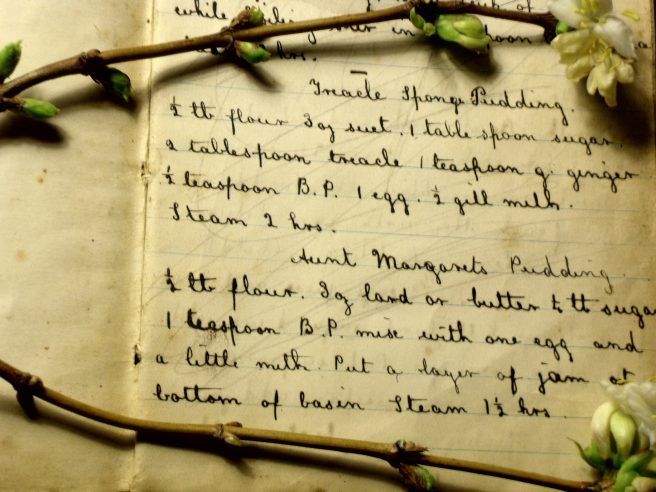 while
in
hrs.
Treacle Sponge Pudding.
½ lb flour 3 oz suet. 1 table spoon sugar.
2 tablespoon treacle 1 teaspoon g. ginger
½ teaspoon B.P. 1 egg. ½ gill milk.
Steam 2 hrs.
Aunt Margarets Pudding.
½ lb flour. 3 oz lard or butter ¼ lb sugar
1 teaspoon B.P. mix with one egg and
a little milk. Put a layer of jam at
bottom of basin Steam 1½ hrs.